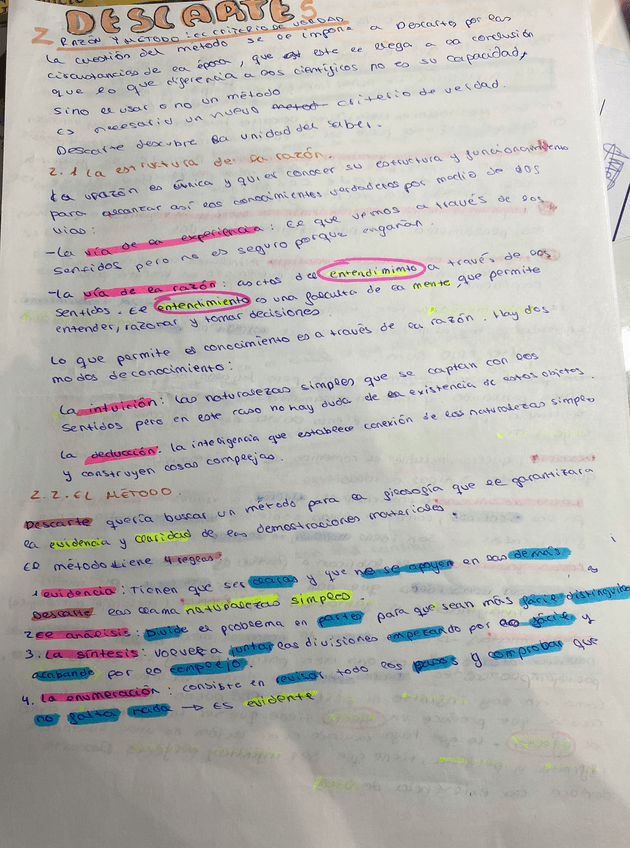 DESCARTES
2 RAZÓN Y MÉTODO: EL CRITERIO DE VERDAD
La cuestión del método se le impone a Descartes por las
circustancias de la época, que este le llega a la conclusión
que lo que diferencia a los cientificos no es su capacidad,
sino el usar o no un método
Es necesario un nuevo criterio de verdad.
Descartes descubre la unidad del saber.
2.1 La estructura de la razón.
La razón es única y quiere conocer su estructura y funcionamiento
para alcanzar así los conocimientos verdaderos por medio de dos
vias:
-La vía de la experiencia: Lo que vemos a través de los
sentidos pero no es seguro porque engañan.
-La vía de la razón: actos del entendimiento a través de los
sentidos. El entendimiento es una facultad de la mente que permite
entender, razonar y tomar decisiones.
Lo que permite el conocimiento es a través de la razón. Hay dos
modos de conocimiento:
La intuición: las naturalezas simples que se captan con los
sentidos pero en este caso no hay duda de la existencia de estos objetos.
La deducción: la inteligencia que establece conexión de las naturalezas simples
y construyen cosas complejas.
2.2. EL MÉTODO.
Descarte quería buscar un método para la filosofía que le garantizara
la evidencia y claridad de las demostraciones materiales.
El método tiene 4 reglas:
1 evidencia: Tienen que ser claras y que no se apoyen en las demás
Descarte las llama naturalezas simples.
2 El análisis: Divide el problema en partes para que sean más fácil distinguirlas
3. La síntesis: volver a juntar las divisiones empezando por lo fácil y
acabando por lo complejo.
4. La enumeración: consiste en revisar todo los pasos y comprobar que
no falta nada → Es evidente